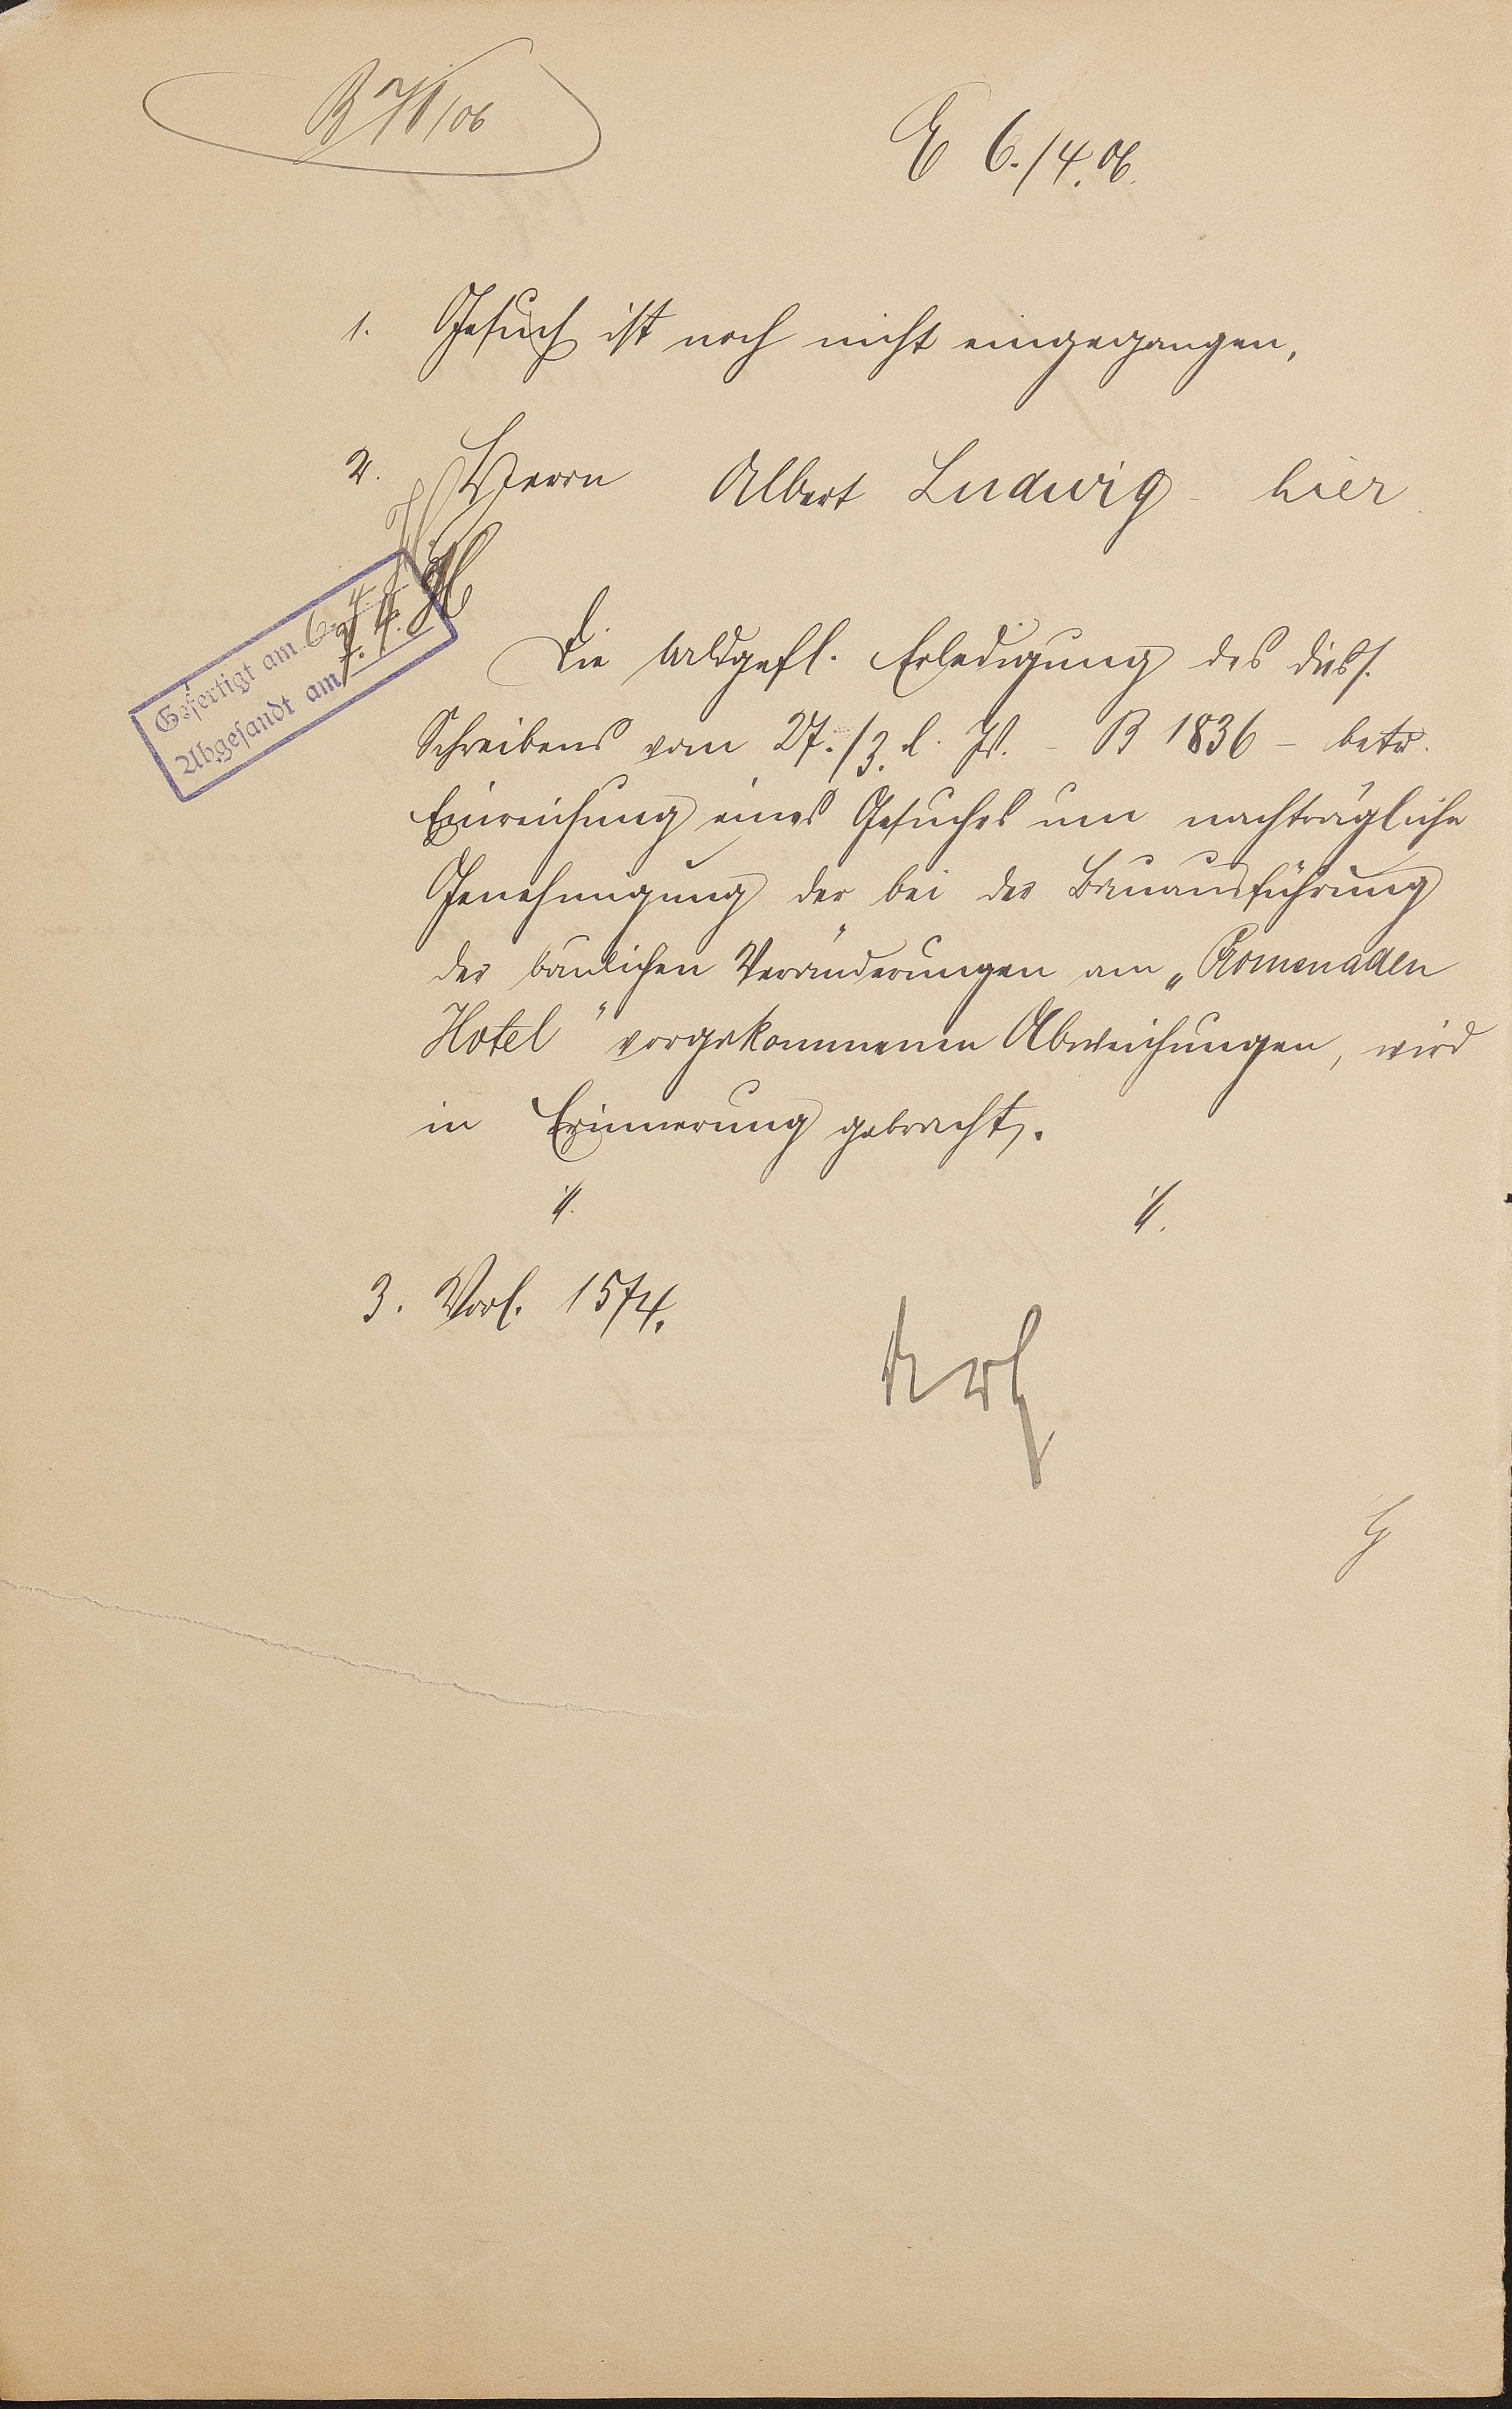 E 6./4.06.
1. Gesuch ist noch nicht eingegangen,
2. Herrn Albert Ludwig - hier
Gefertigt am 6. 4.
Abgesandt am 7. 4.
Die baldgefl. Erledigung des diess.
Schreibens vom 27./3. d. Js. - B 1836 - betr.
Einreichung eines Gesuches um nachträgliche
Genehmigung der bei der Bauausführung
der baulichen Veränderungen am „Promenaden
Hotel" vorgekommenen Abweichungen, wird
in Erinnerung gebracht.
3. Vorl. 15/4.